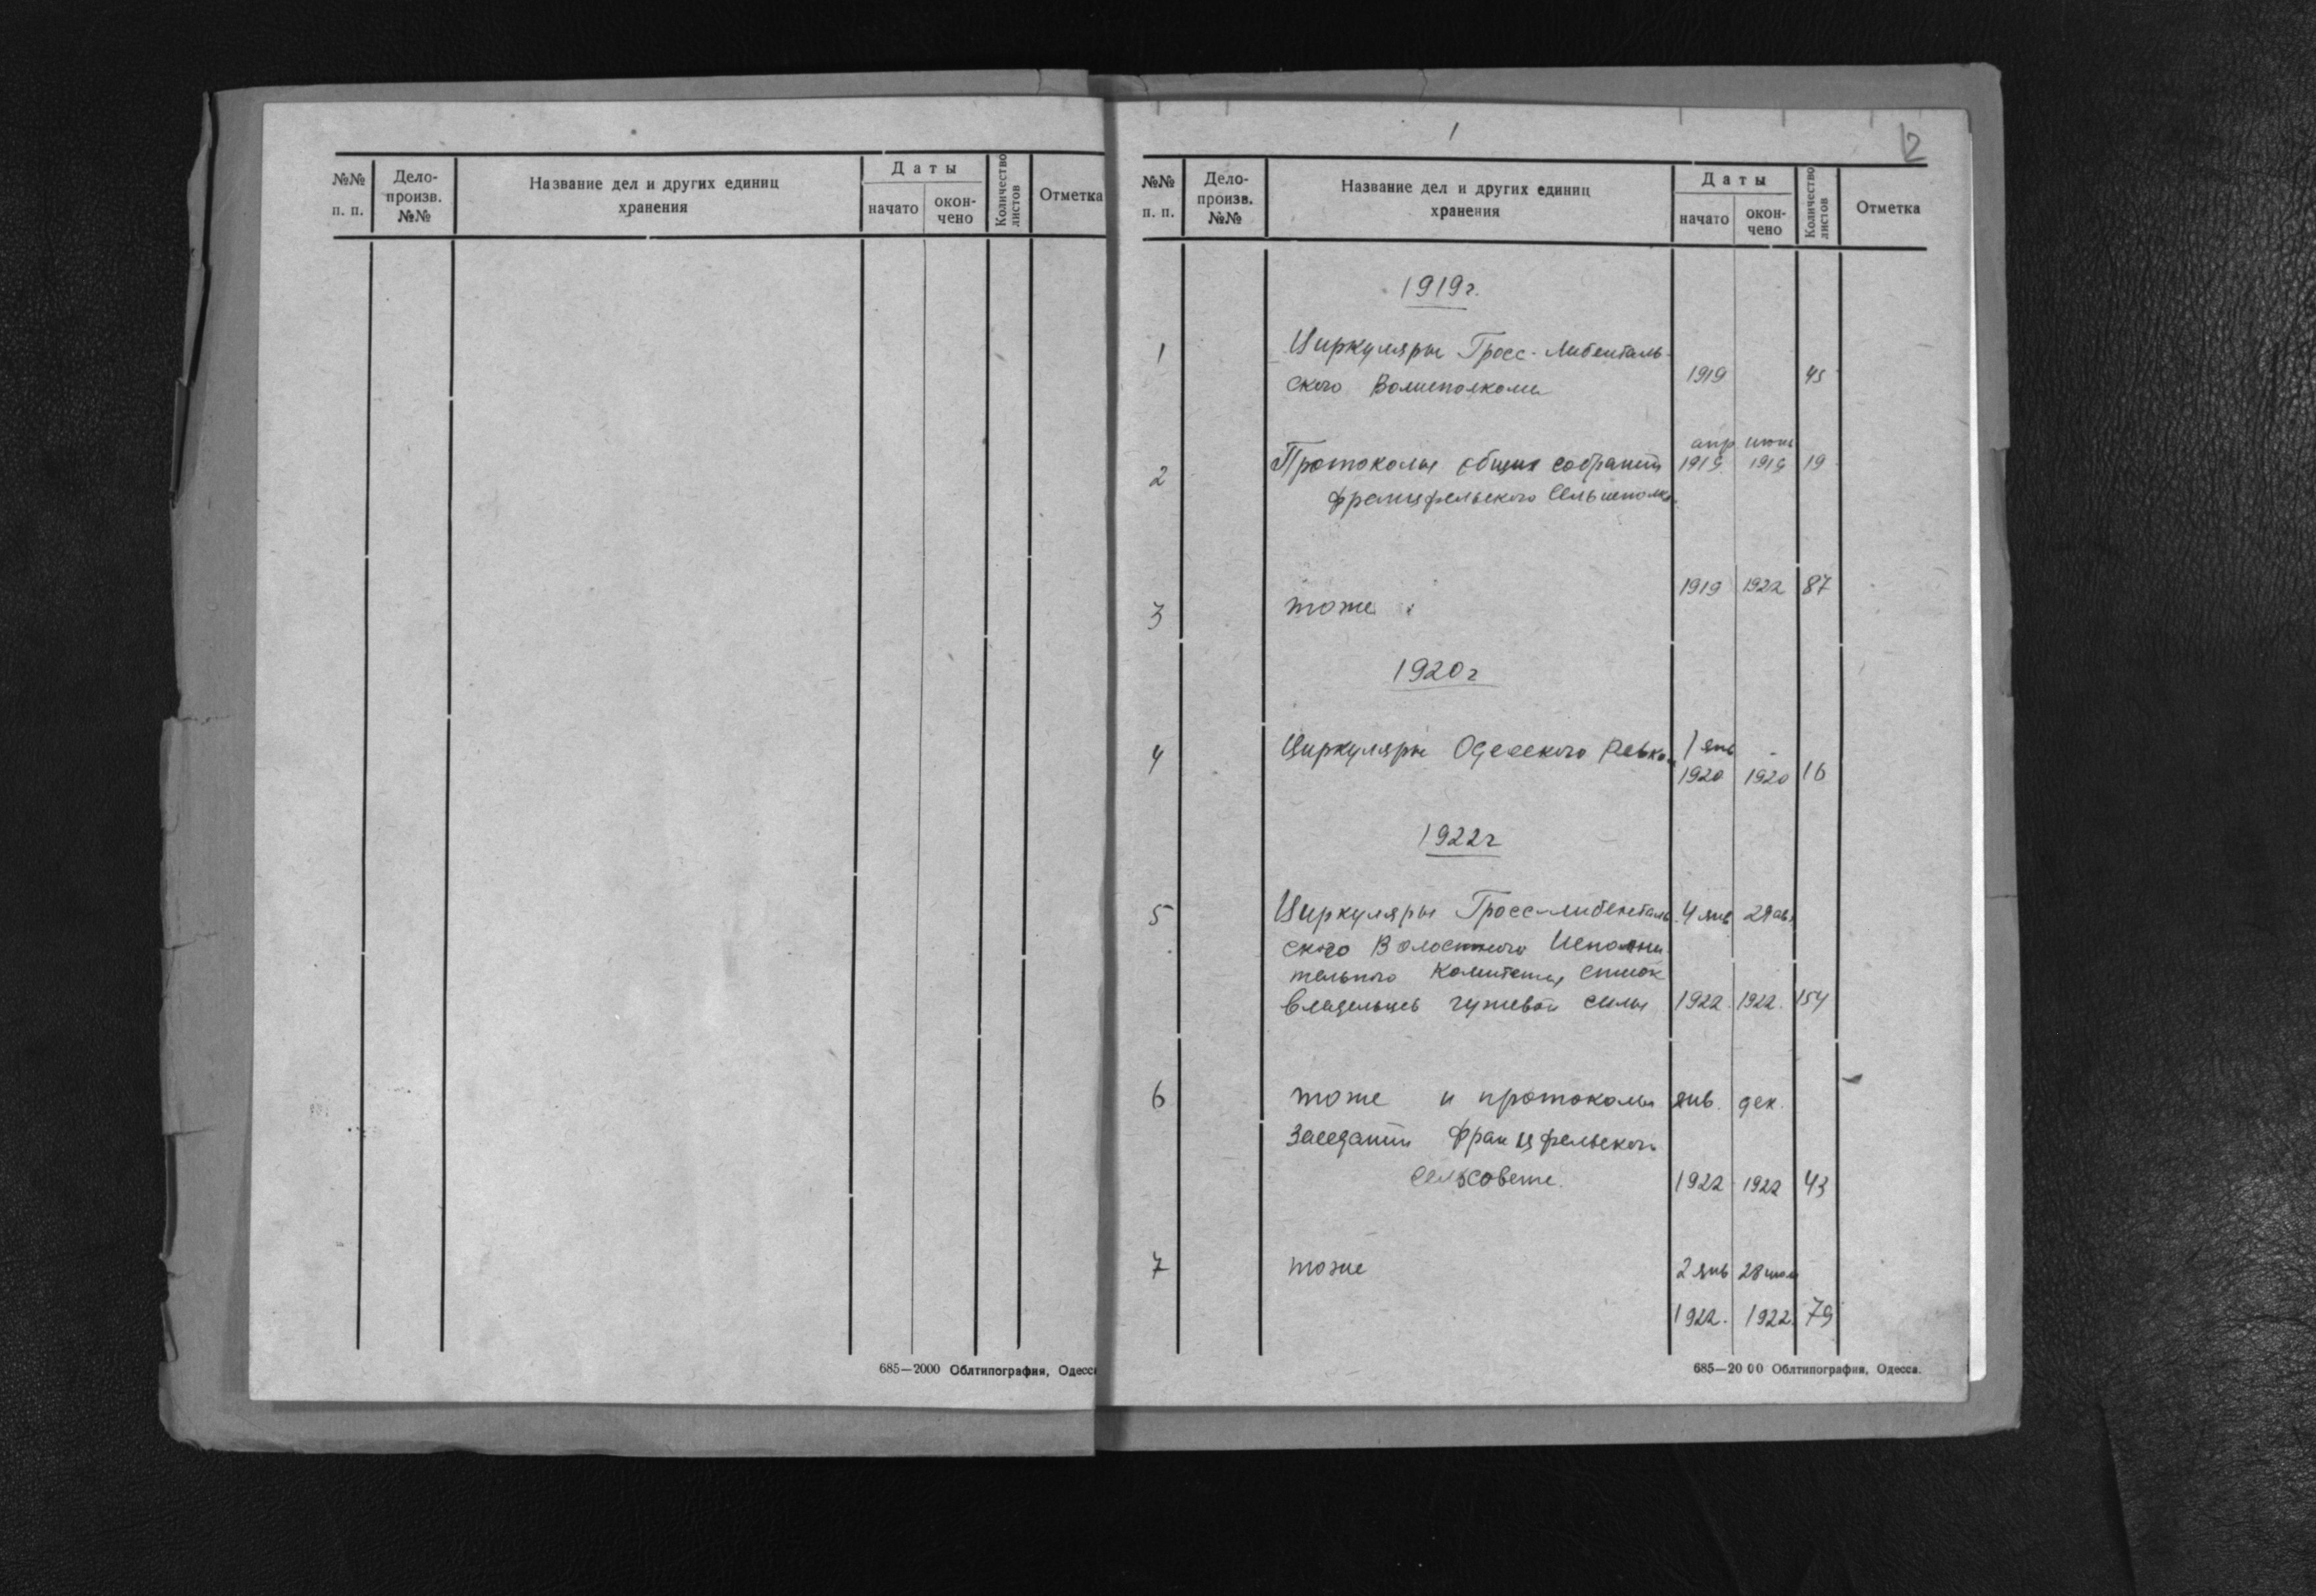 №№ п. п.
Дело-произв. №№
Название дел и других единиц
хранения
Даты
начато
окон-чено
Количество листов
Отметка
685—2000 Облтипография, Одесса
1
2
№№ п. п.
Дело-произв. №№
Название дел и других единиц
хранения
Даты
начато
окон-чено
Количество листов
Отметка
1919г.
1 Циркуляры Гросс-Либенталь-
ского Волисполкома 1919 45
апр июнь
2 Протоколы общих собраний 1919 1919 19
Францфельского Сельисполко
3 тоже 1919 1922 87
1920г
4 Циркуляры Одесского Ревком 1 янв
1920 1920 16
1922г
5 Циркуляры Гросс-Либенталь 4 янв 29 авг
ского Волостного Исполни
тельного Комитета, список
владельцев гужевой силы 1922. 1922. 154
6 тоже и протоколы янв. дек.
заседаний Францфельского
сельсовета. 1922 1922 43
7 тоже 2 янв 28
1922. 1922. 79
685—2000 Облтипография, Одесса.